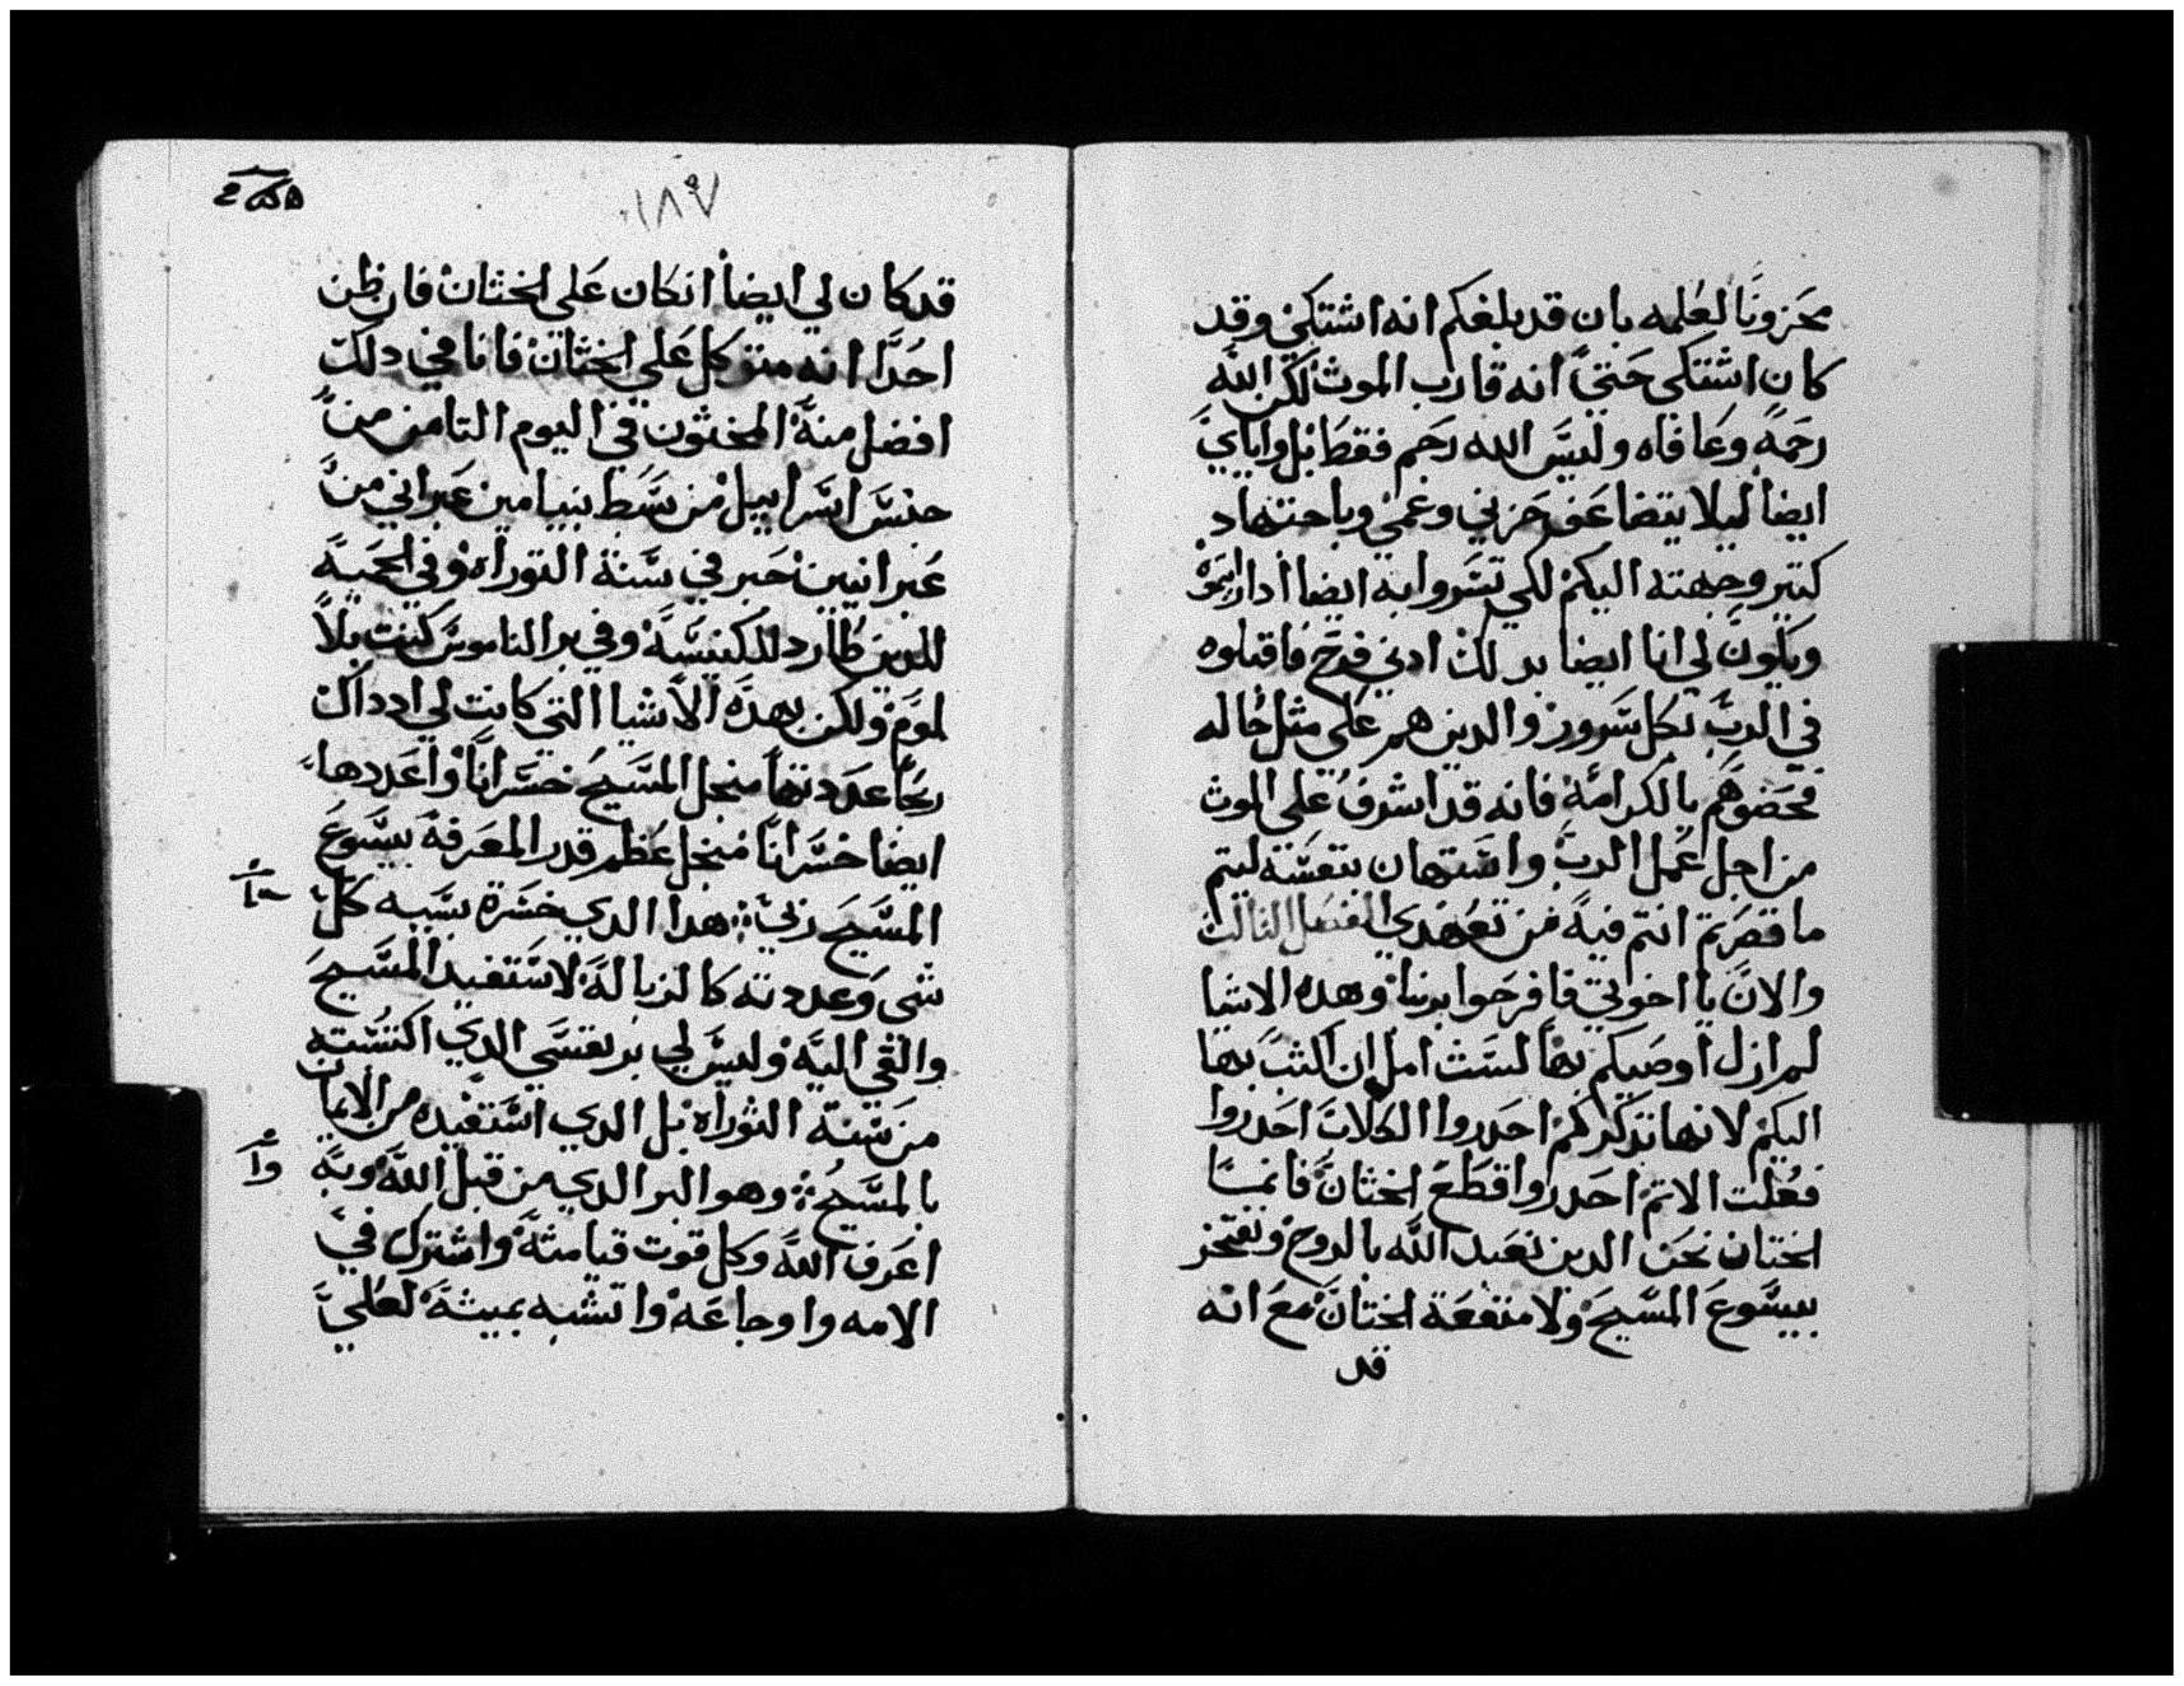 محزونا لعلمه بان قد بلغكم انه اشتكي وقد
كان اشتكي حتي انه قارب الموت لكن الله
رحمه وعافاه وليس الله رحم فقط بل واياي
ايضا ليلا يتضاعف حزني وغمي وباجتهاد
كتير وجهته اليكم لكي تسروا به ايضا ادا رايتموه
ويكون لي انا ايضا بدلك ادني فرح فاقبلوه
في الرب بكل سرور والدين هم علي مثل حاله
فخصوهم بالكرامة فانه قد اشرف علي الموت
من اجل عمل الرب واستهان بنفسه ليتم
ما قصرتم انتم فيه من تعهدي الفصل التالت
والان يا اخوتي فافرحوا بربنا وهده الاشيا
لم ازل اوصيكم بها لست امل ان اكتب بها
اليكم لانها تدكركم احدروا الكلاب احدروا
فعلت الاتم احدروا قطع الختان فانما
الختان نحن الدين نعبد الله بالروح ونفتخر
بيسوع المسيح ولا منفعة الختان مع انه
قد
١٨٧
قد كان لي ايضا اتكان علي الختان فان ظن
احدا انه متوكل علي الختان فانا في دلك
افضل منه المختون في اليوم التامن من
جنس اسراييل من سبط بنيامين عبراني من
عبرانيين حبر في سنة التوراه وفي الحمية
للدين طارد للكنيسة وفي بر الناموس كنت بلا
لوم ولكن بهده الاشيا التي كانت لي اد داك
ربحا عددتها منجل المسيح خسرانا واعددها
ايضا خسرانا منجل عظم قدر المعرفة بيسوع
المسيح ربي هدا الدي خسرة بسببه كل
شي وعددته كالزبالة لاستفيد المسيح
والقي اليه وليس لي بر نفسي الدي اكتسبته
من سنة التوراه بل الدي استفيده من الايمان
بالمسيح وهو البر الدي من قبل الله وبه
اعرف الله وكل قوت قيامته واشترك في
الامه واوجاعه واتشبه بميتة لعلي